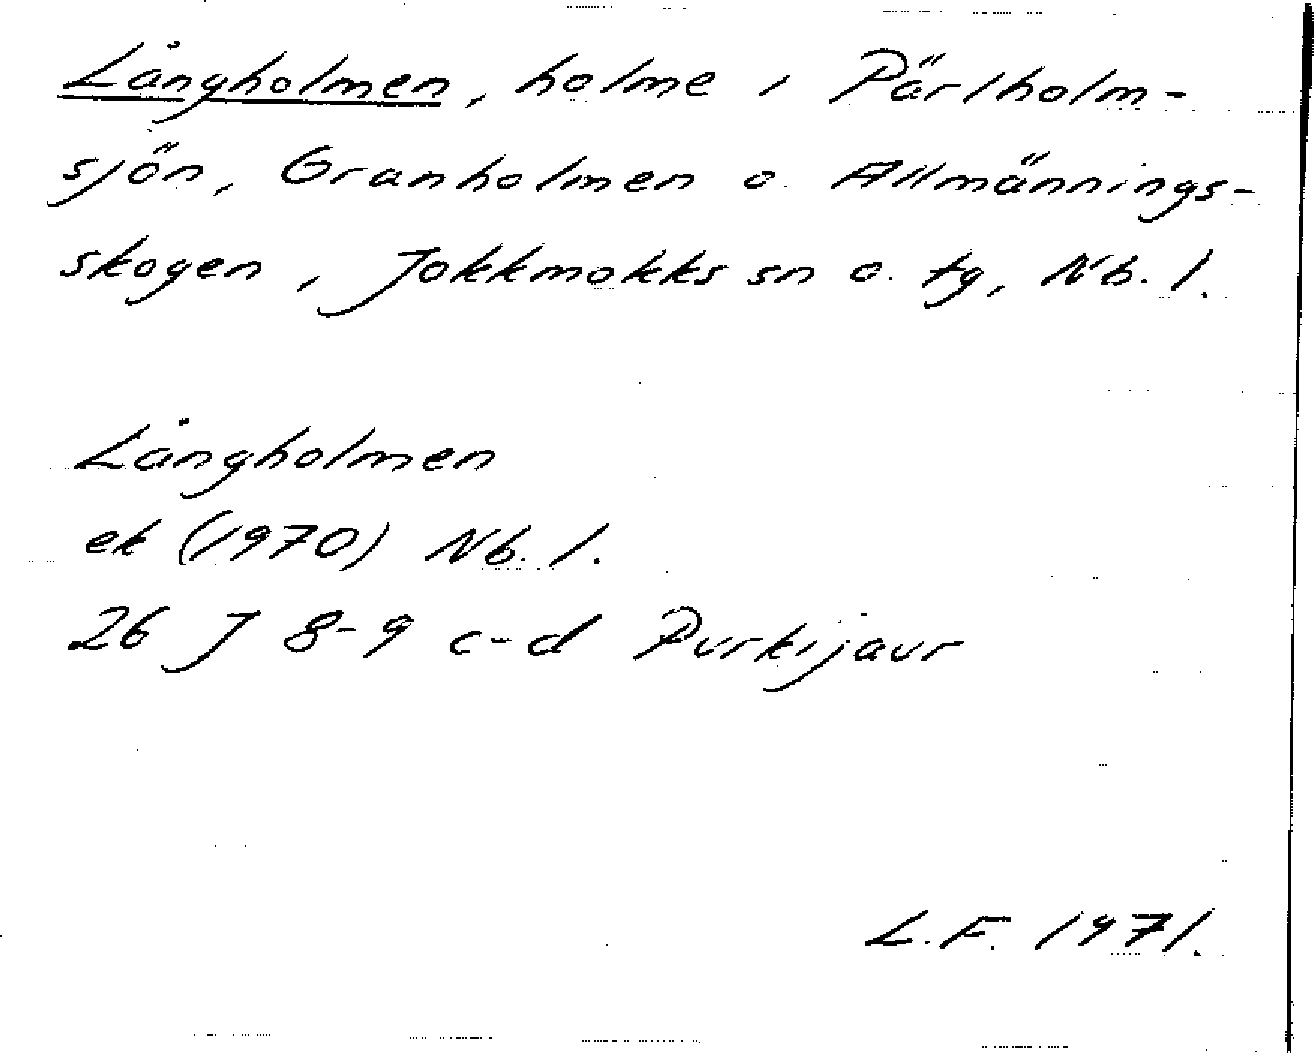 Långholmen, holme i Pärlholm-
sjön, Granholmen o. Allmännings-
skogen, Jokkmokks sn o. tg, Nb. l.
Långholmen
ek (1970) Nb. l.
26 J 8-9 c-d Purkijaur
L.F. 1971.